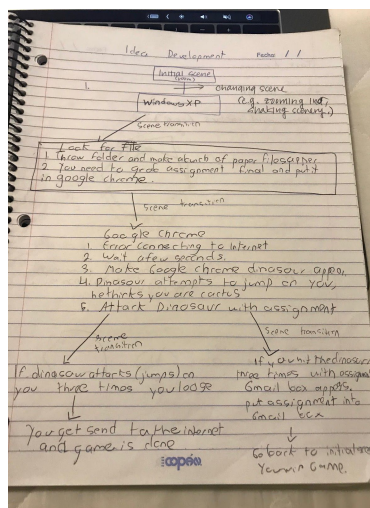 Idea Development
Fecha / /
Initial scene
1.
changing scene
(e.g. zooming into,
shaking scenery.)
Windows XP
Scene transition
Look for File
1 Throw folder and make abunch of paper files apper
2 You need to grab assignment final and put it
in google chrome.
Scene transition
Google chrome
1. Error connecting to Internet
2. Wait afew seconds.
3. Make Google chrome dinosaur appear
4. Dinosaur attempts to jump on you,
he thinks you are cactus
5. Attack Dinosaur with assignment
Scene
transition
If dinosaur attacts (jumps) on
you three times you loose
You get send to the internet
and game is done
Scene transition
If you hit the dinosaur
three times with assignment
Gmail box appers.
put assignment into
Gmail box
Go back to initial scene
You win Game.
copán